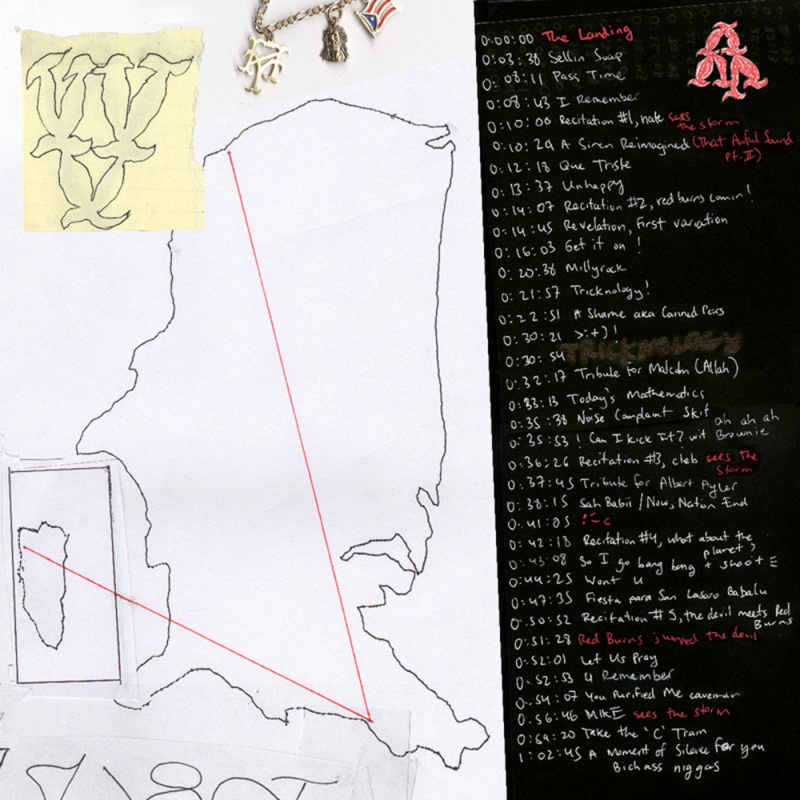 0:00:00 The Landing
0:03:38 Sellin Soap
0:08:11 Pass Time
0:08:43 I Remember
0:10:00 Recitation #1, nate sees
the storm
0:10:29 A Siren Reimagined (That Awful Sound
pt.II)
0:12:18 Que Triste
0:13:37 Unhappy
0:14:07 Recitation #2, red burns comin'!
0:14:45 Revelation, First variation
0:16:03 Get it on !
0:20:38 Millyrock
0:21:57 Tricknology!
0:22:51 A Shame aka Canned Peas
0:30:21 >:+)!
0:30:54 TRICKNOLOGY
0:32:17 Tribute for Malcolm (Allah)
0:33:13 Today's Mathematics
0:35:38 Noise Complaint Skit
0:35:53 ! Can I kick It? wit Brownie
ah ah ah
0:36:26 Recitation #3, cleb sees the
Storm
0:37:45 Tribute for Albert Ayler
0:38:15 Sah Babii / Now, Nation End
0:41:05
0:42:18 Recitation #4, what about the
planet?
0:43:08 So I go bang bong + shoot
0:44:25 Wont U
0:47:35 Fiesta para San Lasaro Babalu
0:50:52 Recitation #5, the devil meets Red
Burns
0:51:28 Red Burns jumped the devil
0:52:01 Let Us Pray
0:52:53 U Remember
0:54:07 You Purified Me caveman
0:56:46 MIKE sees the storm
0:59:20 Take the 'C' Train
1:02:45 A Moment of Silence for you
Bich ass niggas